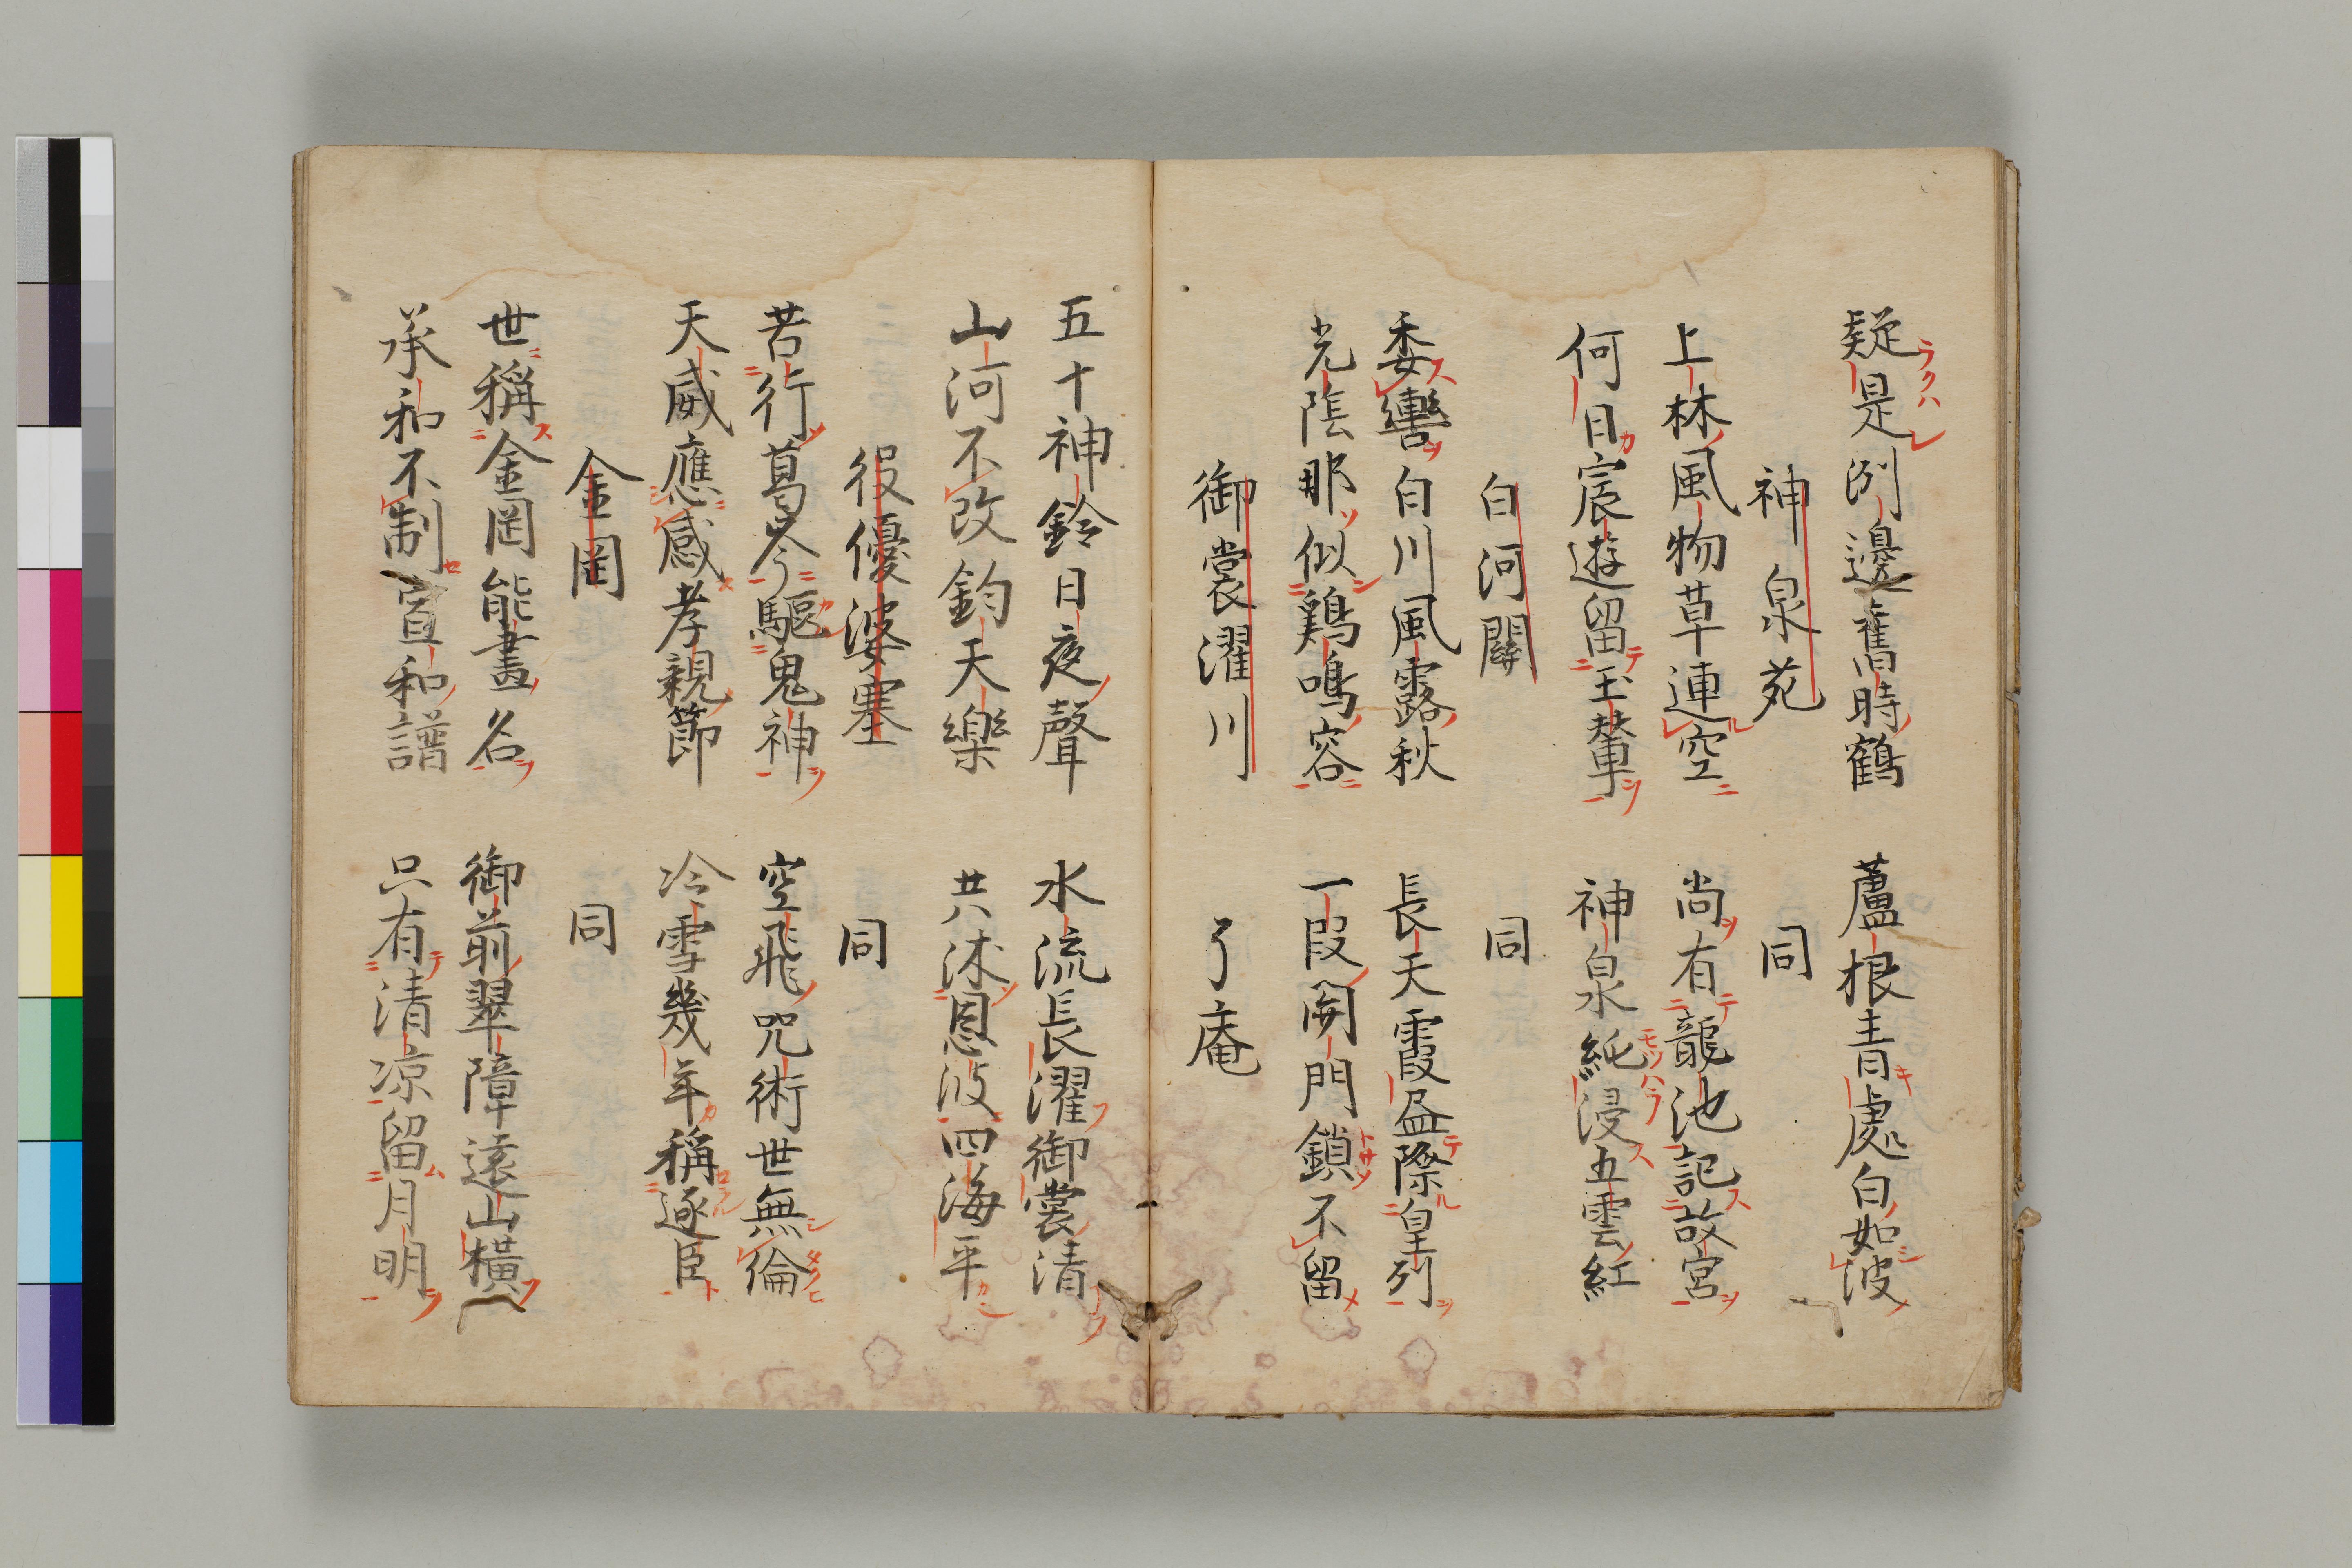 疑是洌邊舊時鶴　蘆根青處白如波
神泉苑　同
上林風物草連空　尚有龍池記故宮
何日宸遊留玉輦　神泉純浸五雲紅
白河關　同
委轡白川風露秋　長天霞盎際皇列
光陰那似鷄鳴容　一段関門鎖不留
御裳濯川　了庵
五十神鈴日夜聲　水流長濯御裳清
山河不改鈞天樂　共沐恩波四海平
役優婆塞　同
苦行葛岑驅鬼神　空飛咒術世無倫
天威應感孝親節　冷雪幾年稱逐臣
金罔　同
世稱金罔能畫名　御前翠障遠山横
承和不制宣和譜　只有清凉留月明